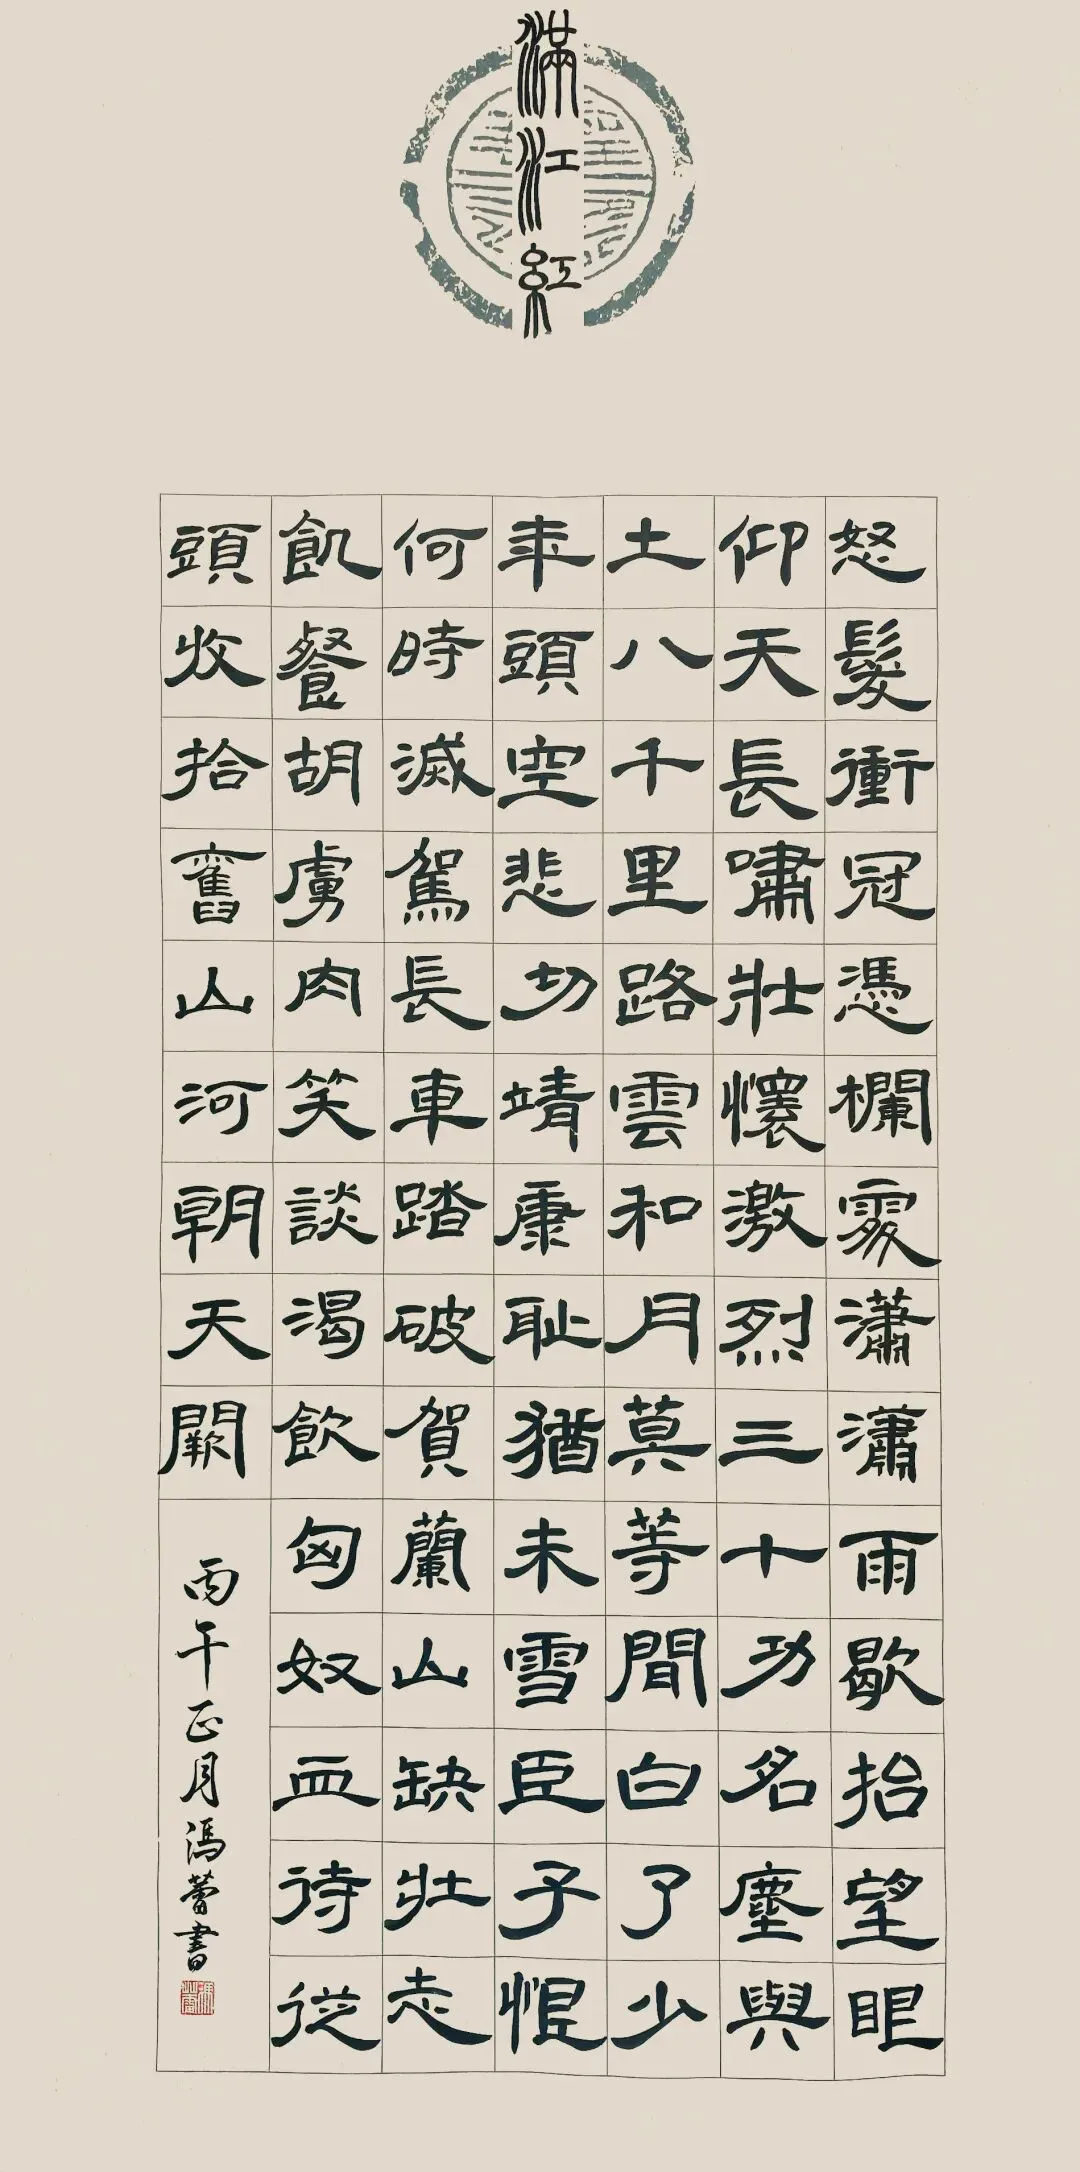 滿江紅
怒髮衝冠憑欄處瀟瀟雨歇抬望眼
仰天長嘯壯懷激烈三十功名塵與
土八千里路雲和月莫等間白了少
年頭空悲切靖康耻猶未雪臣子恨
何時滅駕長車踏破賀蘭山缺壯志
飢餐胡虜肉笑談渴飲匈奴血待從
頭收拾舊山河朝天闕
丙午正月馮蕾書